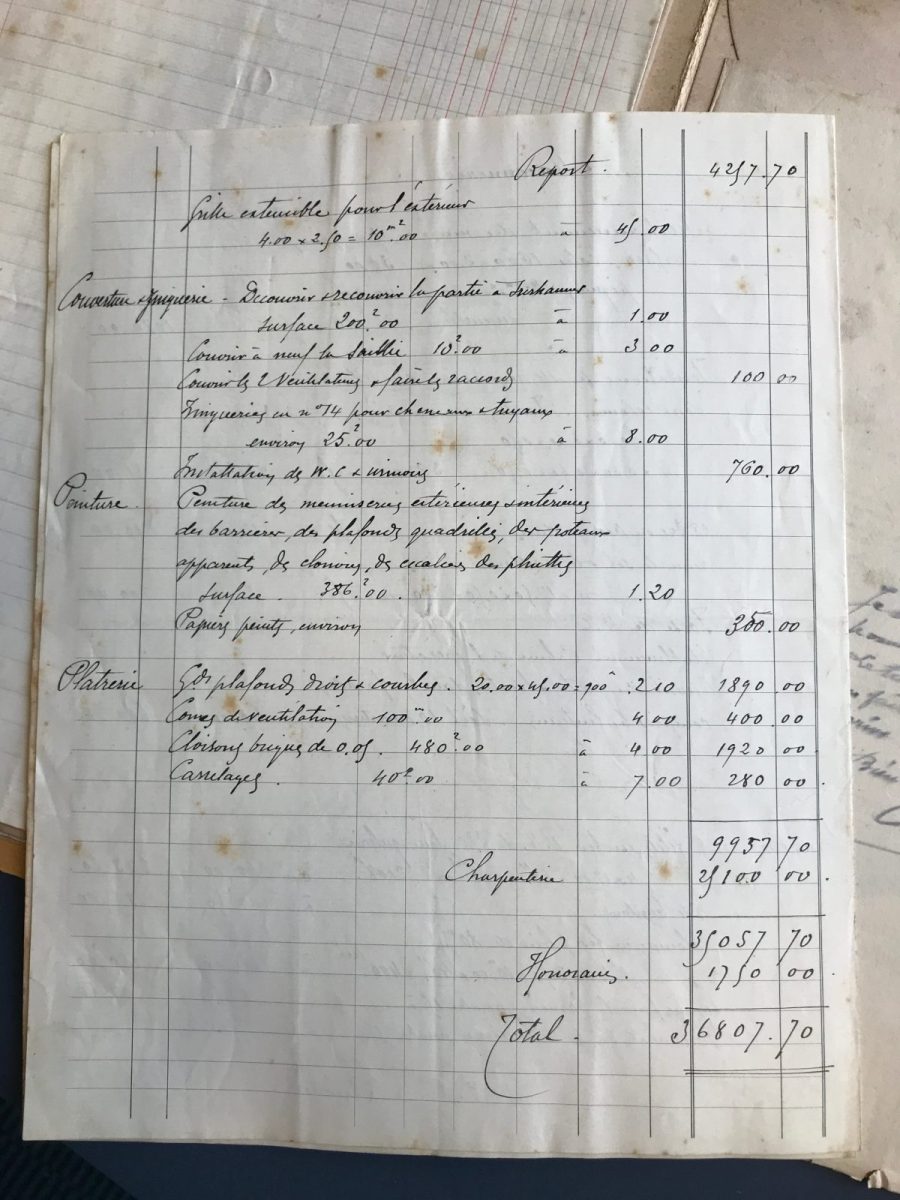 Report. 4257.70
Grille extensible pour l'extérieur
4.00 x 2.50 = 10m²00 à 45.00
Couverture & Zinguerie - Découvrir & recouvrir la partie à
surface 200²00 à 1.00
Couvrir à neuf la Saillie 10²00 à 3.00
Couvrir les 2 Ventilateurs & faire les raccords 100 00
Zingueries en n°14 pour cheneaux & tuyaux
environ 25²00 à 8.00
Installation de W.C & urinoirs 760.00
Peinture. Peinture des menuiseries extérieures & intérieures
des barrières, des plafonds quadrillés, des poteaux
apparents, des cloisons, des escaliers des plinthes
surface. 386²00. 1.20
Papiers peints, environ 350.00
Platrerie Gds plafonds droits & courbes. 20.00 x 45.00 = 900 2.10 1890 00
de ventilation 100m00 4.00 400.00
Cloisons briques de 0.05. 480²00 à 4.00 1920 00
Carrelages. 40²00 à 7.00 280 00.
9957 70
Charpenterie 25100 00.
35057 70
Honoraires. 1750 00
Total. 36807.70